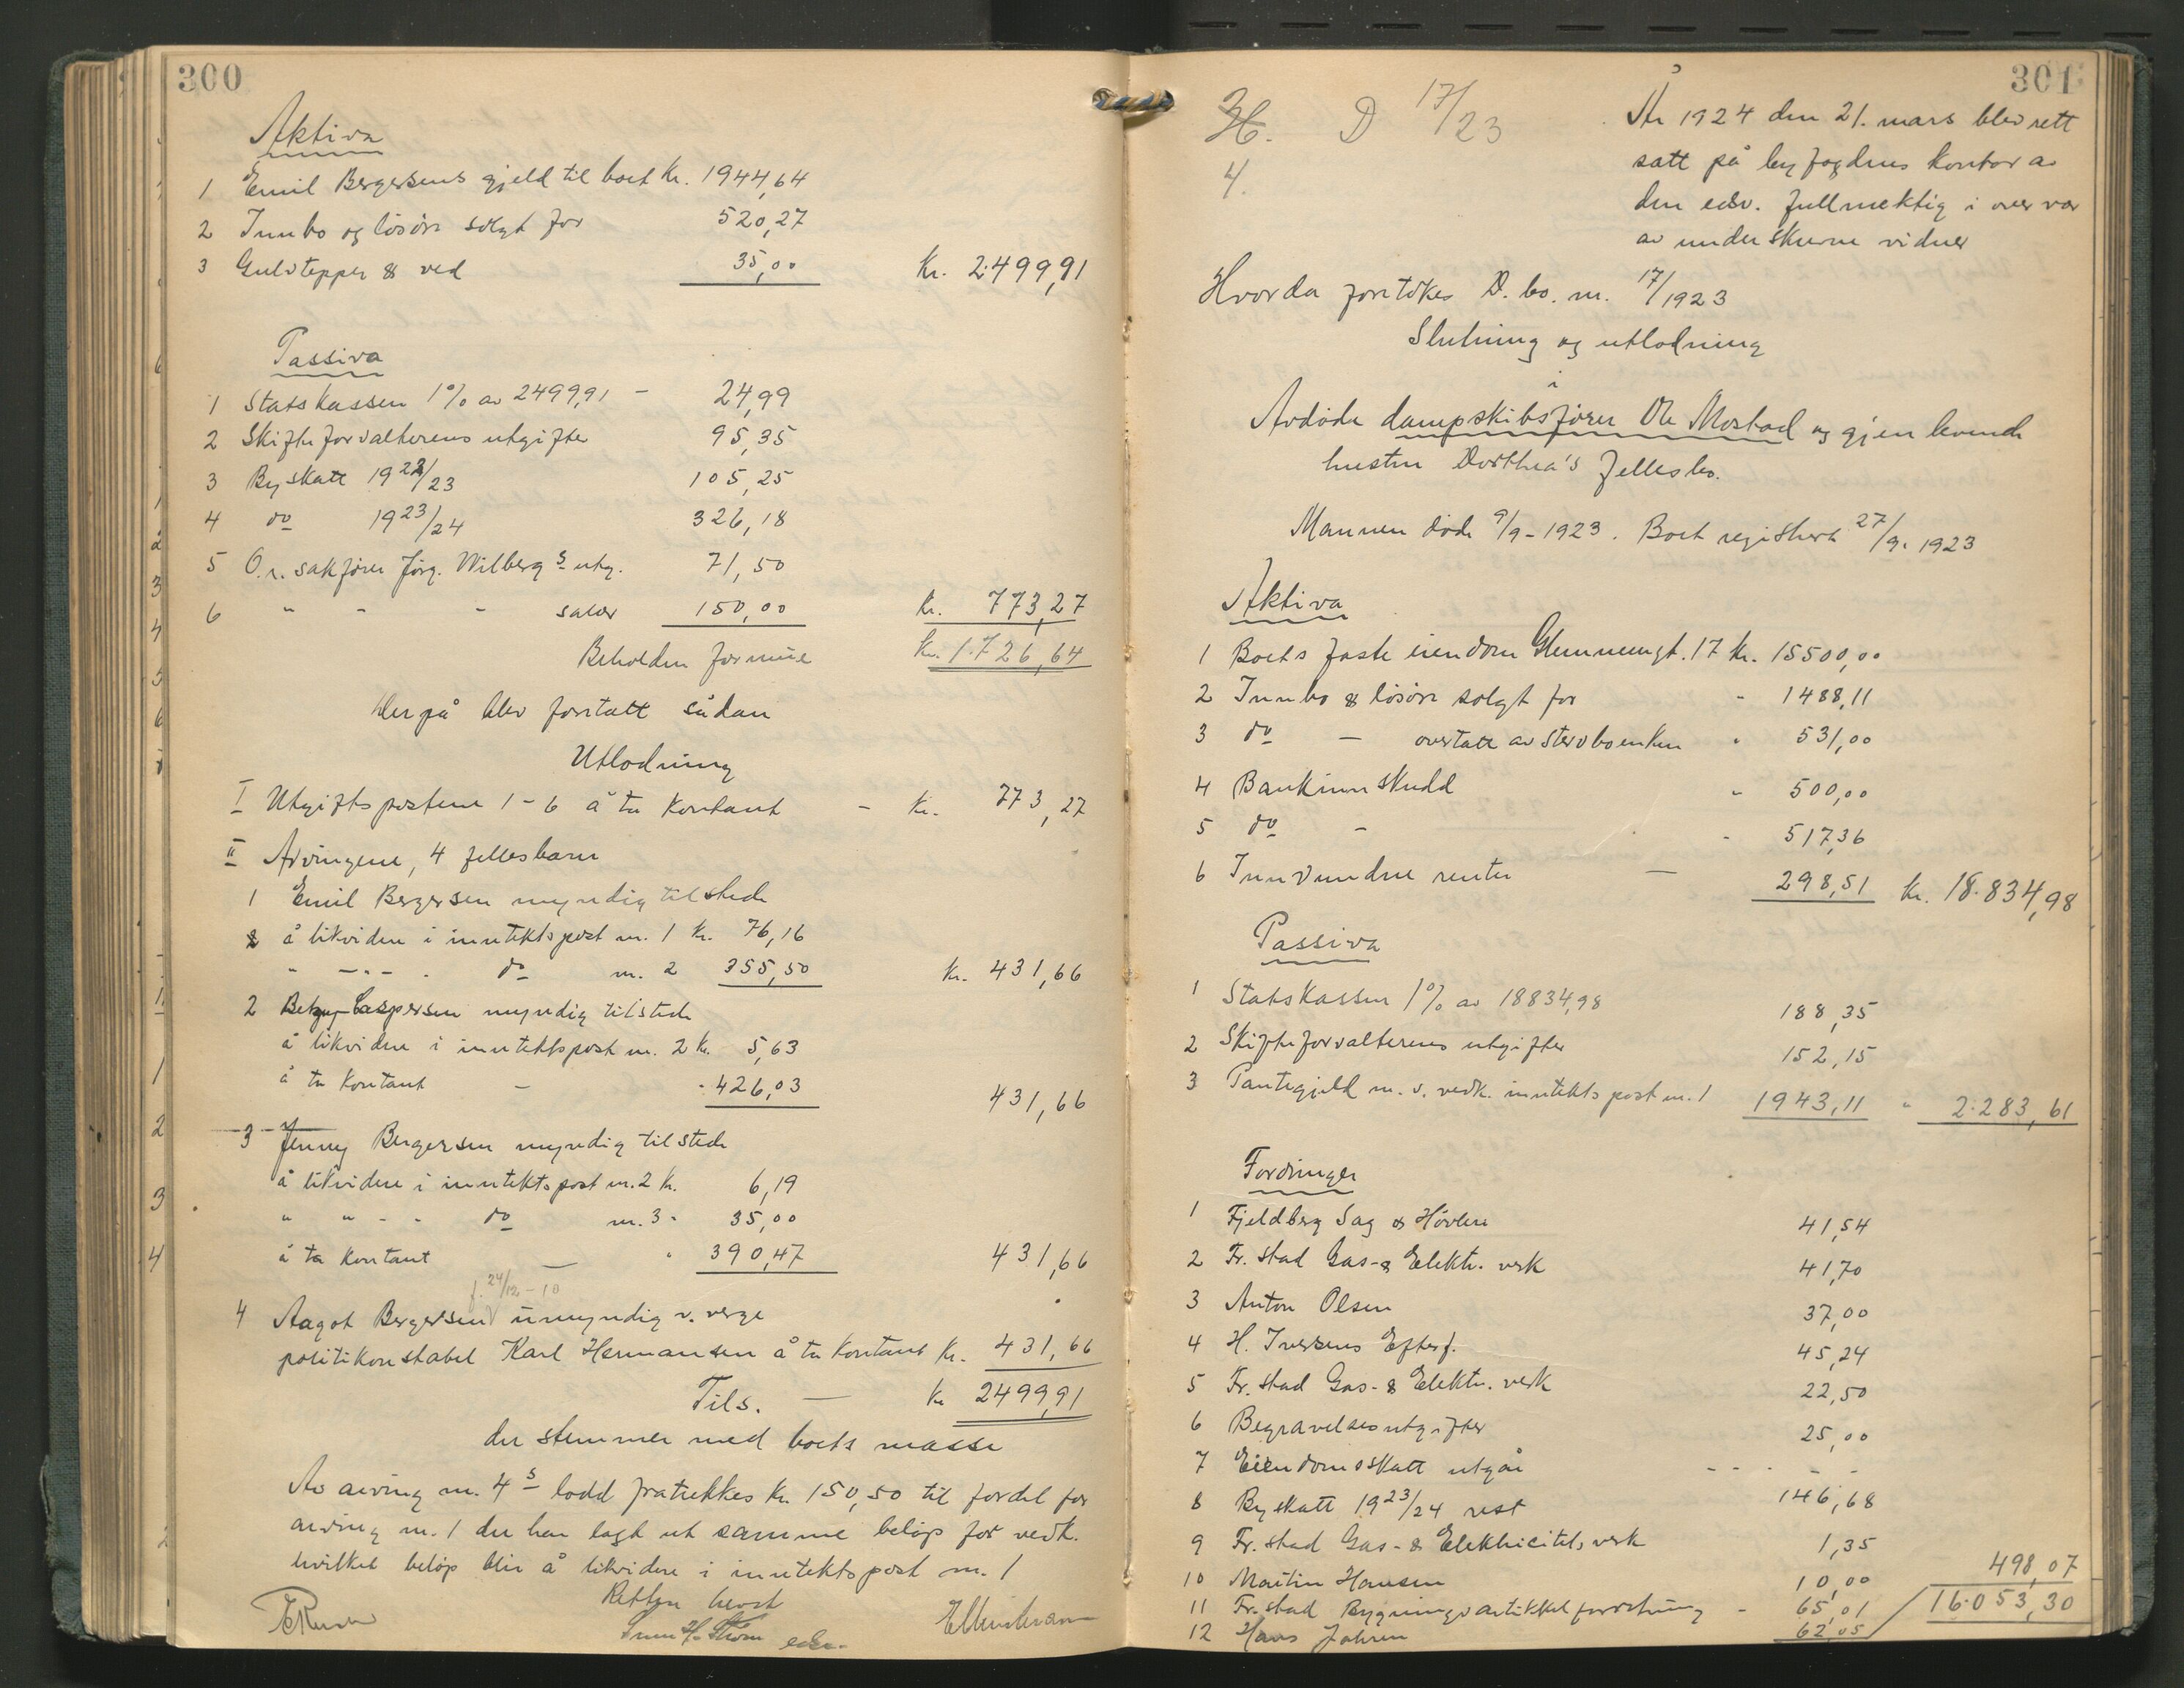 300
Aktiva
1 Emil Bergersens gjeld til boet Kr. 1944,64
2 Innbo og løsøre solgt for 520,27
3 Gulvtepper & ved 35,00 Kr. 2.499,91
Passiva
1 Statskassen 1% av 2499,91 - 24,99
2 Skifteforvalterens utgifter 95,35
3 Byskatt 1922/23 105,25
4 do 1923/24 326,18
5 O.r. sakfører Jørg. Wilbergs utg. 71,50
6 " - - salær 150,00 Kr. 773,27
Beholden formue Kr. 1.726,64
Derpå blev foretatt sådan
Utlodning
I Utgiftspostene 1-6 å ta kontant - Kr. 773,27
II Arvingene, 4 fellesbarn
1 Emil Bergersen myndig tilstede
å likvidere i inntektspost nr. 1 Kr. 76,16
" - " - - do nr. 2 355,50 Kr. 431,66
2 Caspersen myndig tilstede
å likvidere i inntektspost nr. 2 Kr. 5,63
å ta kontant - - 426,03 431,66
3 Jenny Bergersen myndig tilstede
å likvidere i inntektspost nr. 2 Kr. 6,19
" " - - do nr. 3 - 35,00
å ta kontant — " 390,47 431,66
f. 24/12-10
4 Aagot Bergersen umyndig v. verge
politikonstabel Karl Hermansen å ta kontant Kr. 431,66
Tils. — Kr 2499,91
der stemmer med boets masse
Av arving nr. 4s lodd fratrekkes Kr. 150,50 til fordel for
arving nr. 1 der har lagt ut samme beløp for vedk.
hvilket beløp blir å likvidere i inntektspost nr. 1
Retten hevet
301
D 17/23
4.
År 1924 den 21. mars blev rett
satt på byfogdens kontor av
den edsv. fullmektig i overvær
av underskrevne vidner
Hvorda foretokes D. bo. nr. 17/1923
Slutning og utlodning
i
Avdøde dampskibsfører Ole Mostad og gjenlevende
hustru Dorthea's fellesbo.
Mannen døde 9/9-1923. Boet registrert 27/9. 1923
Aktiva
1 Boets faste eiendom Glemmengt. 17 Kr. 15500,00
2 Innbo & løsøre solgt for - 1488,11
3 do — overtatt av stervboenken " 531,00
4 Bankinnskudd " 500,00
5 do - - 517,36
6 Innvundne renter — 298,51 Kr. 18.834,98
Passiva
1 Statskassen 1% av 18834,98 188,35
2 Skifteforvalterens utgifter 152,15
3 Pantegjeld m.v. vedk. inntektspost nr. 1 1943,11 " 2.283,61
Fordringer
1 Fjeldberg Sag & Høvleri 41,54
2 Fr.stad Gas- & Elektr. verk 41,70
3 Anton Olsen 37,00
4 H. Iversens Efterf. 45,24
5 Fr.stad Gas- & Elektr. verk 22,50
6 Begravelsesutgifter 25,00
7 Eiendomsskatt utgår - - - - -
8 Byskatt 1923/24 rest 146,68
9 Fr.stad Gas- & Elektricitetsverk 1,35
10 Martin Hansen 10,00 498,07
11 Fr.stad Bygningsartikkelforretning - 65,01 16.053,30
12 Hans Johren 62,05